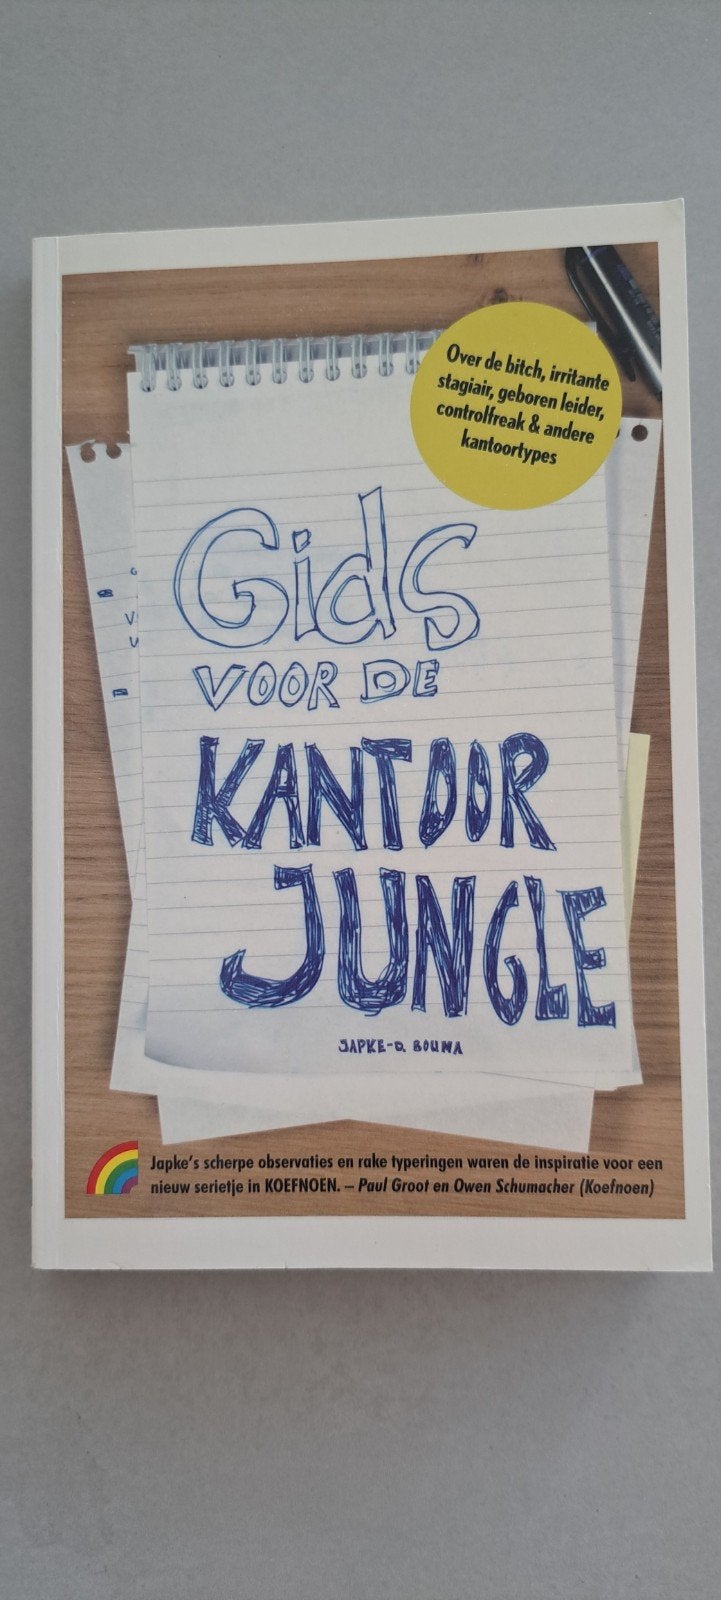 Over de bitch, irritante
stagiair, geboren leider,
controlfreak & andere
kantoortypes
Gids
VOOR DE
KANTOOR
JUNGLE
JAPKE-D. BOUMA
Japke's scherpe observaties en rake typeringen waren de inspiratie voor een
nieuw serietje in KOEFNOEN. – Paul Groot en Owen Schumacher (Koefnoen)